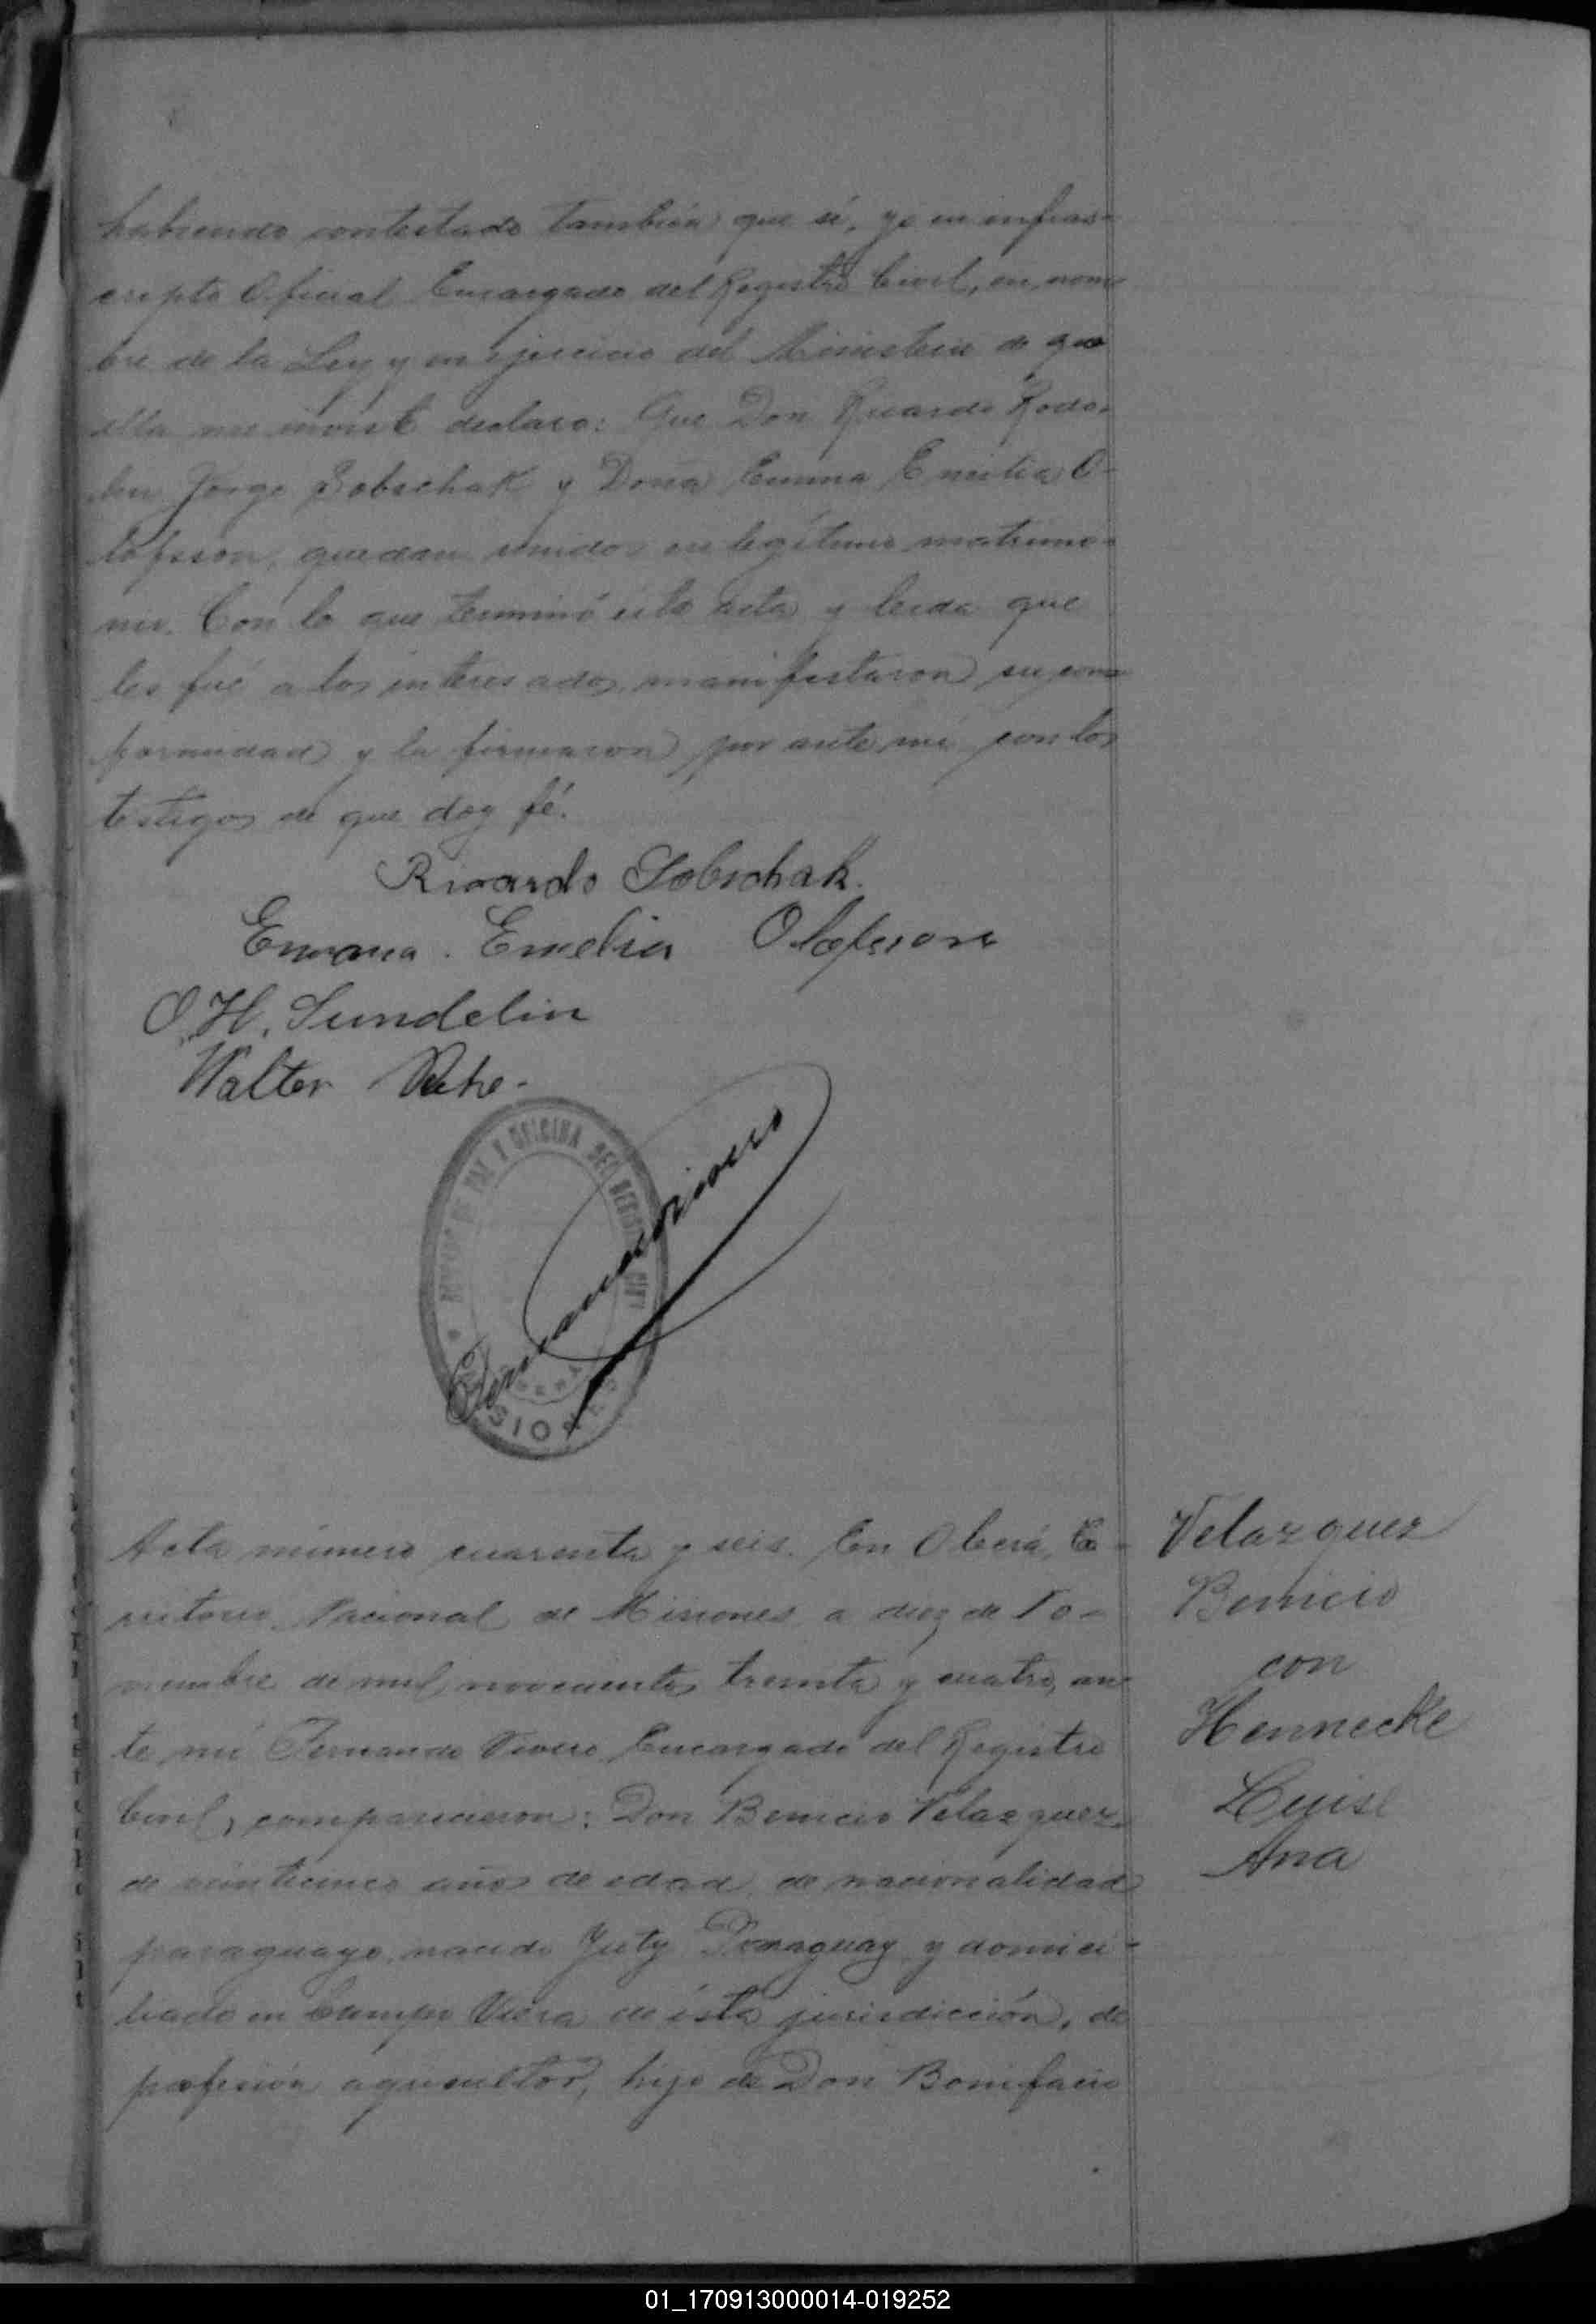 habiendo contestado también que sí, yo en infras-
cripto Oficial Encargado del Registro Civil, en nom-
bre de la Ley y en ejercicio del Ministerio de que
ella me inviste declaro: Que Don Ricardo Rodo-
Jorge Sobschak y Doña Emma Emilia O-
lofsson, quedan unidos en legítimo matrimo-
nio. Con lo que terminó este acta y leida que
les fué a los interesados, manifestaron su con-
formidad y la firmaron por ante mí con los
testigos de que doy fé.
Ricardo Sobschak.
Emma. Emelia Olofsson
O. H. Sundelin
Walter
Y OFICINA DEL REGISTRO CIVIL
MISIONES
Fernando Vivero
Acta número cuarenta y seis. En Oberá, Te-
rritorio Nacional de Misiones a diez de No-
viembre de mil novecientos treinta y cuatro, an-
te mí Fernando Vivero Encargado del Registro
Civil, comparecieron: Don Benicio Velazquez
de veinticinco años de edad de nacionalidad
paraguayo nacido Yuty Paraguay y domici-
liado en Campo Viera de ésta jurisdicción, de
profesión agricultor, hijo de Don Bonifacio
Velazquez
Benicio
con
Hennecke
Luise
Ana
01_170913000014-019252